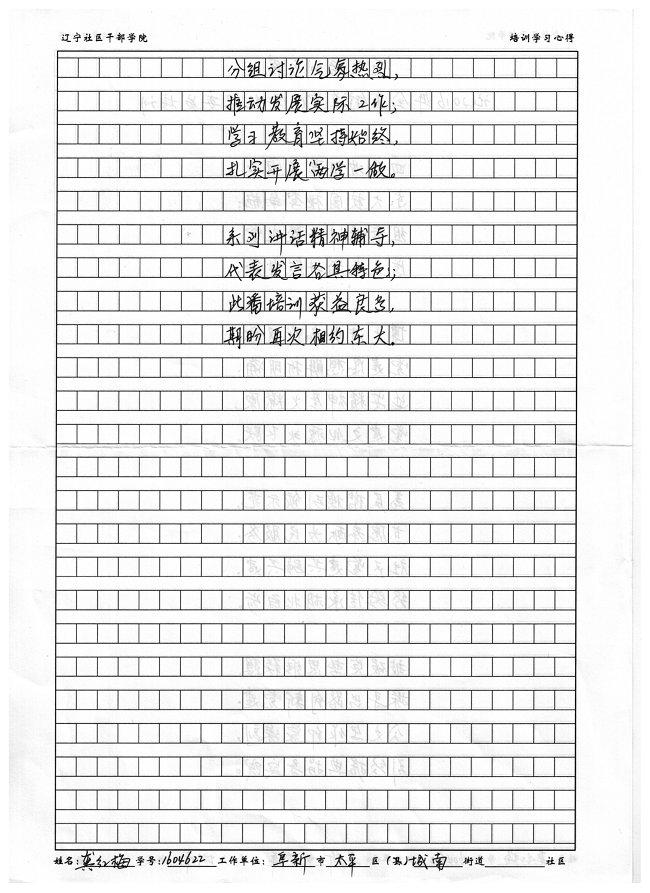 辽宁社区干部学院 培训学习心得
分组讨论气氛热烈,
推动发展实际工作;
学习教育坚持始终,
扎实开展两学一做。
系列讲话精神辅导,
代表发言各具特色;
此番培训获益良多,
期盼再次相约东大。
姓名:龚红梅 学号:1604622 工作单位:阜新市太平区(县)城南街道 社区